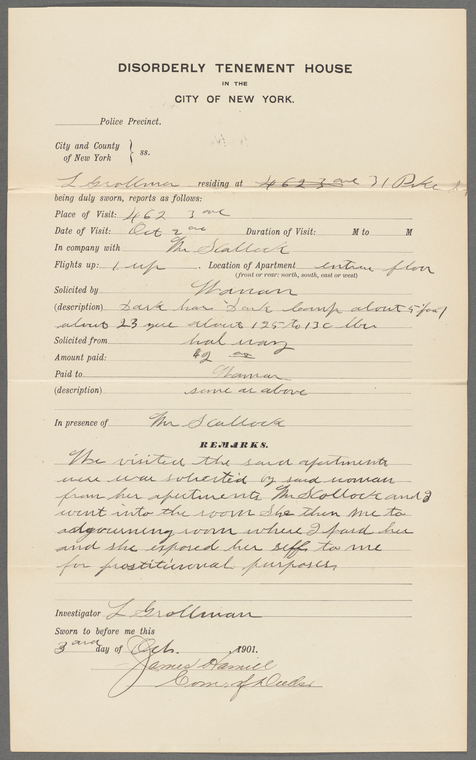 DISORDERLY TENEMENT HOUSE
IN THE
CITY OF NEW YORK.
Police Precinct.
City and County
of New York } ss.
L Grollman residing at 462 3 ave 71 Pike St
being duly sworn, reports as follows:
Place of Visit: 462 3 ave
Date of Visit: Oct 2 Duration of Visit: M to M
In company with Mr Scallock
Flights up: 1 up . Location of Apartment entire floor
(front or rear: north, south, east or west)
Solicited by Woman
(description) Dark hair Dark comp about 5
about 23 about 125 to 130 lbs
Solicited from hal way
Amount paid: $2 00
Paid to Woman
(description) same as above
In presence of Mr Scallock
REMARKS.
We visited the said apartments
were was solicited by said woman
from her apartments Mr Scollock and I
went into the room She then me to
adgowning room where I paid her
and she exposed her self to me
for prostitiional purposes
Investigator L Grollman
Sworn to before me this
3ard day of Oct. , 1901.
James Hamill
Com. of Deeds